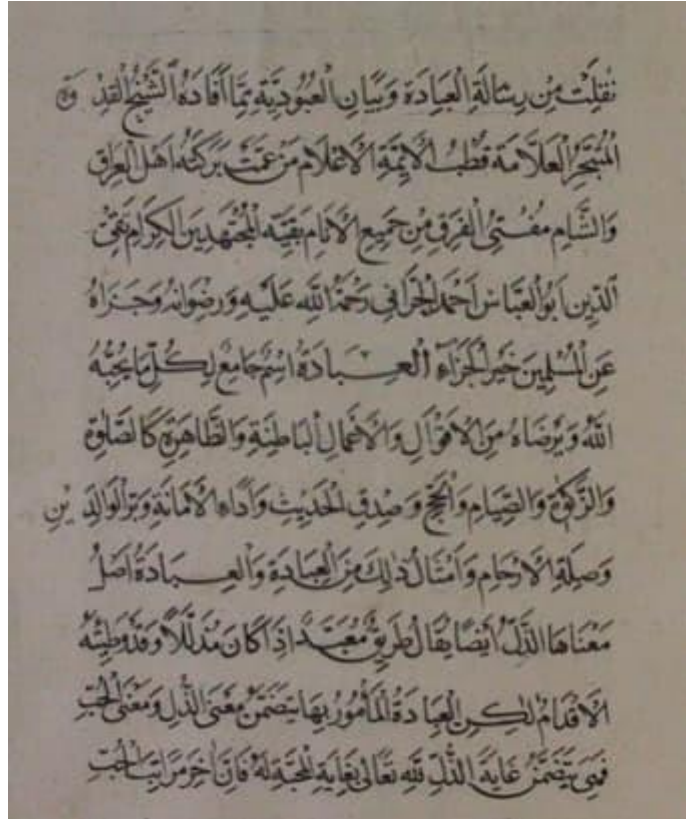 نُقِلَتْ مِنْ رِسَالَةِ الْعِبَادَة وَبَيَانِ الْعُبُودِيَّةِ مِمَّا اَفَادَهُ الشَّيْخُ الْقُدْوَةُ
الْمُتَبَحِّرُ الْعَلَّامَة قُطْبُ الْاَئِمَّةِ الْاَعْلَام مَنْ عَمَّتْ بَرَكَتُهُ اَهْلَ الْعِرَاقِ
وَالشَّامِ مُفْتِى الْفِرَقِ مِنْ جَمِيعِ الْاَنَامِ بَقِيَّة الْمُجْتَهِدِينَ الْكِرَامِ تَقِىُّ
الدِّينِ اَبُو الْعَبَّاسْ اَحْمَدُ الْحَرَّانِي رَحْمَةُ اللَّهِ عَلَيْهِ وَرِضْوَانُهُ وَجَزَاهُ
عَنِ الْمُسْلِمِينَ خَيْرَ الْجَزَآءِ الْعِبَادَةُ اسْمٌ جَامِعٌ لِكُلِّ مَا يُحِبُّهُ
اللَّهُ وَيَرْضَاهُ مِنَ الْاَقْوَالِ وَالْاَعْمَالِ الْبَاطِنَةِ وَالظَّاهِرَةِ كَالصَّلٰوةِ
وَالزَّكٰوةِ وَالصِّيَامِ وَالْحَجِّ وَصِدْقِ الْحَدِيثِ وَاَدَاءِ الْاَمَانَةِ وَبِرِّ الْوَالِدَيْنِ
وَصِلَةِ الْاَرْحَامِ وَاَمْثَالُ ذٰلِكَ مِنَ الْعِبَادَةِ وَالْعِبَادَةُ اَصْلُ
مَعْنَاهَا الذُّلُّ اَيْضًا يُقَالُ طَرِيقٌ مُعَبَّدٌ اِذَا كَانَ مُذَلَّلًا وَقَدْ وَطِئَتْهُ
الْاَقْدَامُ لٰكِنِ الْعِبَادَةُ الْمَأْمُورُ بِهَا يَتَضَمَّنُ مَعْنَى الذُّلِ وَمَعْنَى الْحُبِّ
فَهِىَ يَتَضَمَّنُ غَايَةَ الذُّلِّ لِلّٰهِ تَعَالٰى بِغَايَةِ الْمَحَبَّةِ لَهُ فَاِنَّ اٰخِرَ مَرَاتِبِ الْحُبِّ